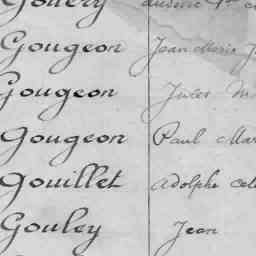 Gougeon Jean Marie J
Gougeon Jules M
Gougeon Paul Mar
Gouillet Adolphe Cel
Gouley Jean